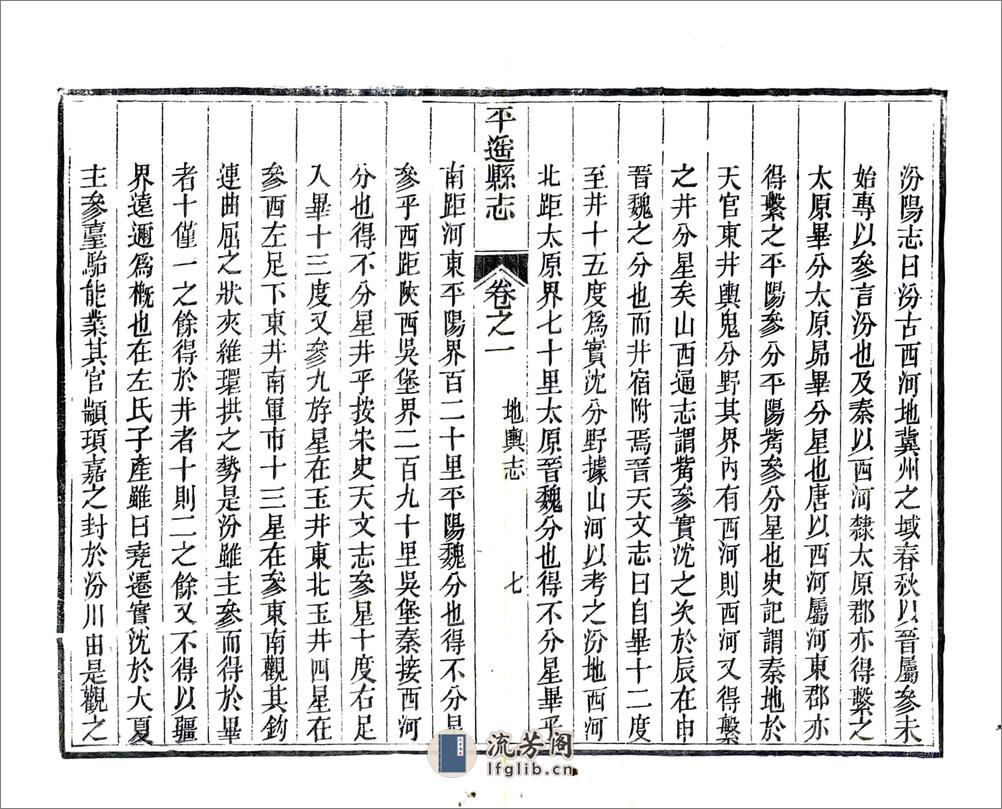 汾陽志曰汾古西河地冀州之域春秋以晉屬參未
始專以參言汾也及秦以西河隸太原郡亦得繫之
太原畢分太原昴畢分星也唐以西河屬河東郡亦
得繫之平陽參分平陽觜參分星也史記謂秦地於
天官東井輿鬼分野其界內有西河則西河又得繫
之井分星矣山西通志謂觜參實沈之次於辰在申
晉魏之分也而井宿附焉晉天文志曰自畢十二度
至井十五度爲實沈分野據山河以考之汾地西河
北距太原界七十里太原晉魏分也得不分星畢乎
平遥縣志
卷之一
地輿志
七
南距河東平陽界百二十里平陽魏分也得不分星
參乎西距陝西吳堡界二百九十里吳堡秦接西河
分也得不分星井乎按宋史天文志參星十度右足
入畢十三度又參九斿星在玉井東北玉井四星在
參西左足下東井南軍市十三星在參東南觀其鈎
連曲屈之狀夾維環拱之勢是汾雖主參而得於畢
者十僅一之餘得於井者十則二之餘又不得以疆
界遠邇爲概也在左氏子產雖曰堯遷實沈於大夏
主參臺駘能業其官顓頊嘉之封於汾川由是觀之
流芳閣
lfglib.cn